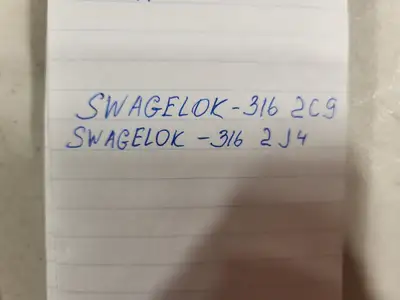 SWAGELOK - 316 2C9
SWAGELOK - 316 2J4